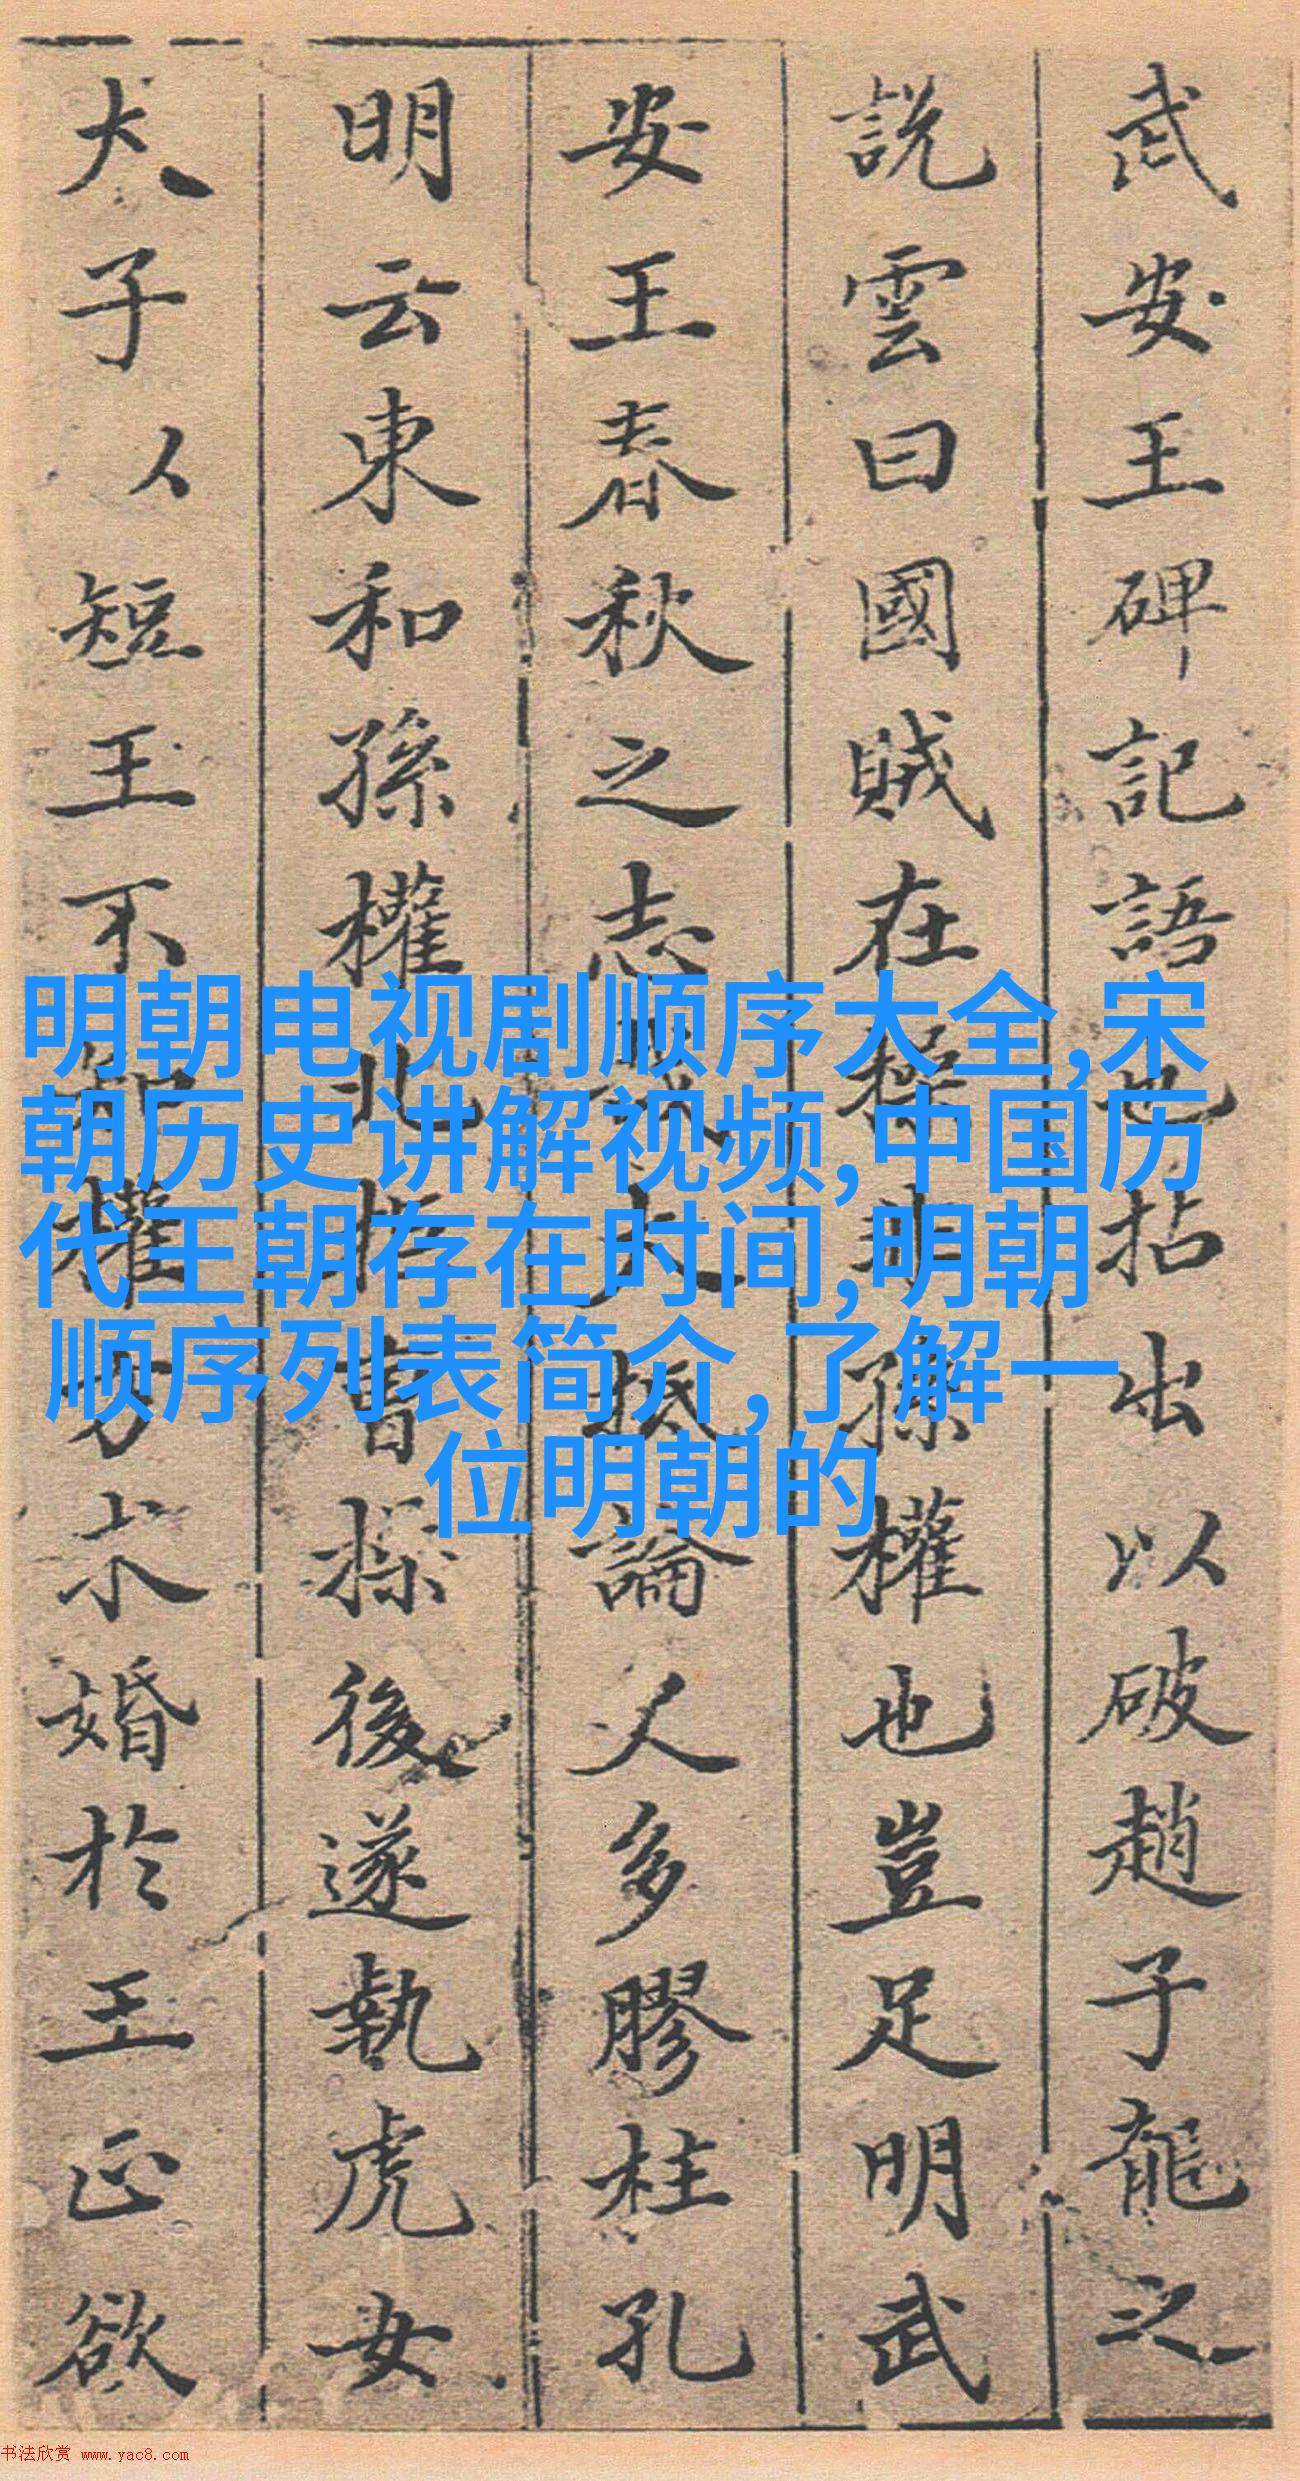 武安王碑記語也拈出以破趙子龍之
說雲曰國賊在操非孫權也豈足明武
安王春秋之志大抵論人多膠柱孔
明云東和孫權北拒曹操後遂執虎女
犬子以短王不知權方求婚於王正欲
明朝电视剧顺序大全,宋
朝历史讲解视频,中国历
代王朝存在时间,明朝
顺序列表简介,了解一
位明朝的
书法欣赏 www.yac8.com